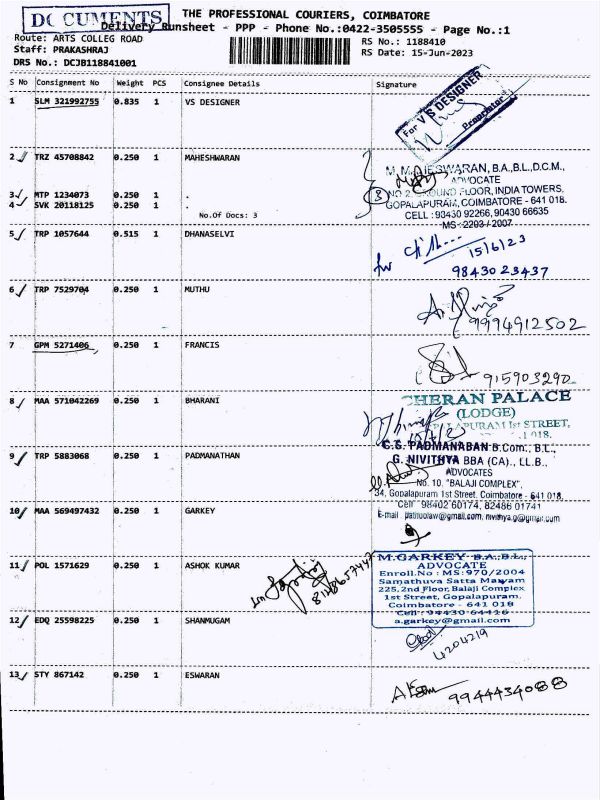 DOCUMENTS
THE PROFESSIONAL COURIERS, COIMBATORE
Delivery Runsheet - PPP - Phone No.:0422-3505555 - Page No.:1
Route: ARTS COLLEG ROAD
RS No.: 1188410
Staff: PRAKASHRAJ
RS Date: 15-Jun-2023
DRS No.: DCJB118841001
S No Consignment No Weight PCS Consignee Details Signature
1 SLM 321992755 0.835 1 VS DESIGNER
For V S DESIGNER
Proprietor
2 TRZ 45708842 0.250 1 MAHESHWARAN
M. MAHESWARAN, B.A.,B.L.,D.C.M.,
ADVOCATE
3 MTP 1234073 0.250 1 .
NO 2, GROUND FLOOR, INDIA TOWERS,
4 SVK 20118125 0.250 1 .
GOPALAPURAM, COIMBATORE - 641 018.
No.Of Docs: 3
CELL : 93430 92266, 90430 66635
MS : 2203 / 2007
5 TRP 1057644 0.515 1 DHANASELVI
15/6/23
9843023437
6 TRP 7529704 0.250 1 MUTHU
9994912502
7 GPM 5271406 0.250 1 FRANCIS
915903290
8 MAA 571042269 0.250 1 BHARANI
CHERAN PALACE
(LODGE)
GOPALAPURAM Ist STREET,
C.S. PADMANABAN B.Com., B.L.,
9 TRP 5883068 0.250 1 PADMANATHAN
G. NIVITHYA BBA (CA)., LL.B.,
ADVOCATES
No. 10, "BALAJI COMPLEX",
34, Gopalapuram 1st Street, Coimbatore - 641 018.
Cell : 98402 60174, 82486 01741
10 MAA 569497432 0.250 1 GARKEY
11 POL 1571629 0.250 1 ASHOK KUMAR
M.GARKEY B.A.B.L.,
ADVOCATE
Enroll.No : MS:970/2004
Samathuva Satta Maiyam
225, 2nd Floor, Balaji Complex
1st Street, Gopalapuram,
Coimbatore - 641 018
Cell : 94430 64416
a.garkey@gmail.com
12 EDQ 25598225 0.250 1 SHANMUGAM
4204219
13 STY 867142 0.250 1 ESWARAN
9944434088